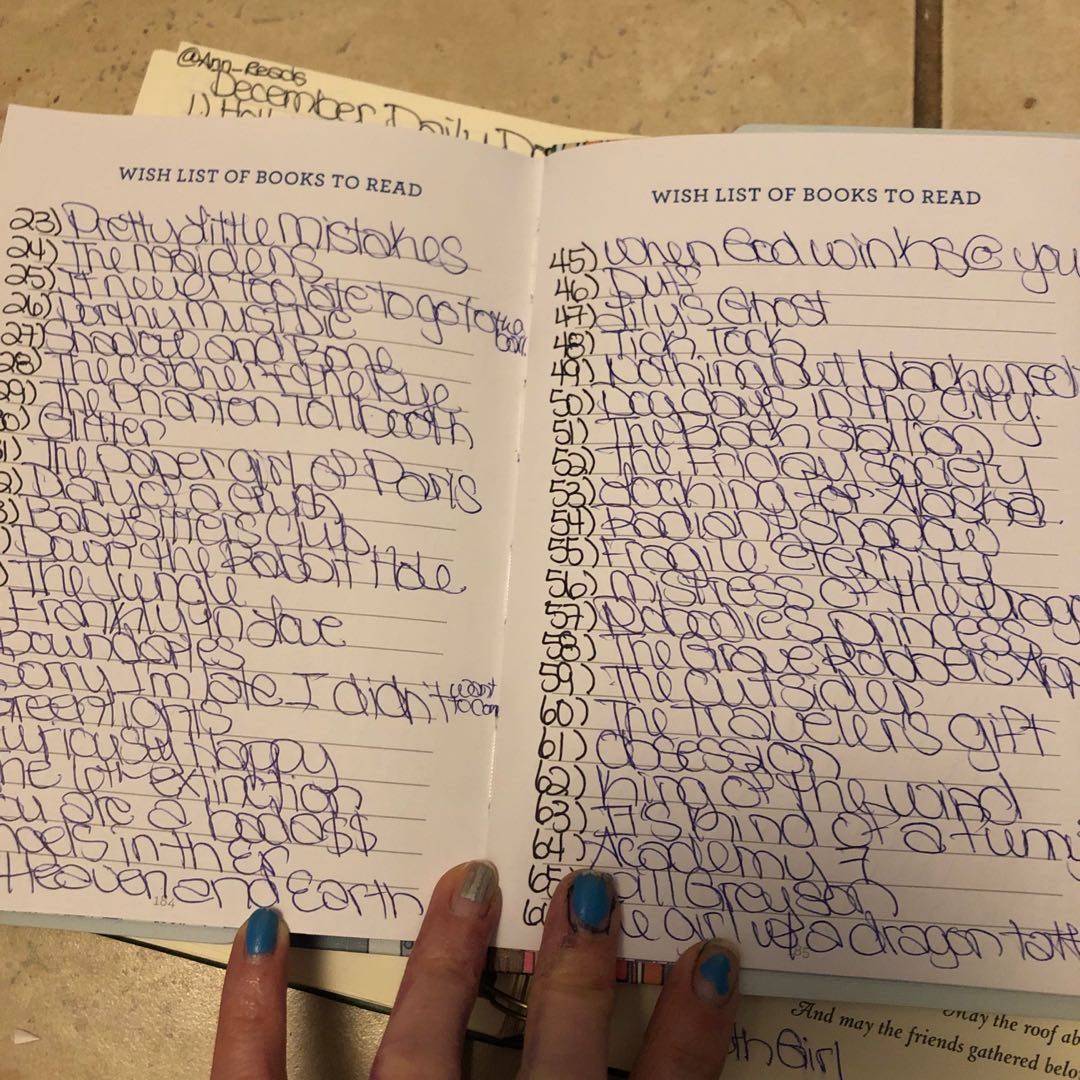 @Ann_Reads
December Daily
1.)
WISH LIST OF BOOKS TO READ
23) Pretty Little Mistakes
24) The Maidens
25) It never too late to go to the
26) Dorthy Must Die
27) Shadow and Bone
28) The Catcher & the Rye
29) The Phantom Tollbooth
0) Glitter
1) The Paper girl of Paris
2) Diary of a
3) Babysitters Club
) Down the Rabbit Hole
) The Jungle
Frankly In Love
Boundaries
Sorry I'm late I didn't want to com
reenlights
uriously Happy
he extinction
ou are a bada$$
ngels in the ER
Heaven and Earth
184
WISH LIST OF BOOKS TO READ
45) When God winks @ you
46) Duff
47) Lily's Ghost
48) Tick Tock
49) Nothing But blackened
50) Dog days in the City.
51) The Black Stallion
52) The Friday Society
53) Looking for Alaska
54) Radiant Shadow
55) Fragile eternity
56) Mistress of the Drago
57) princess
58) The Grave Robbers App
59) The Outsider
60) The Travelers gift
61) Obsession
62) King of the wind
63) It's kind of a funny
64) Academy 7
65) ill Greyson
6 e girl w/ a dragon tatt
85
May the roof ab
And may the friends gathered belo
th Girl